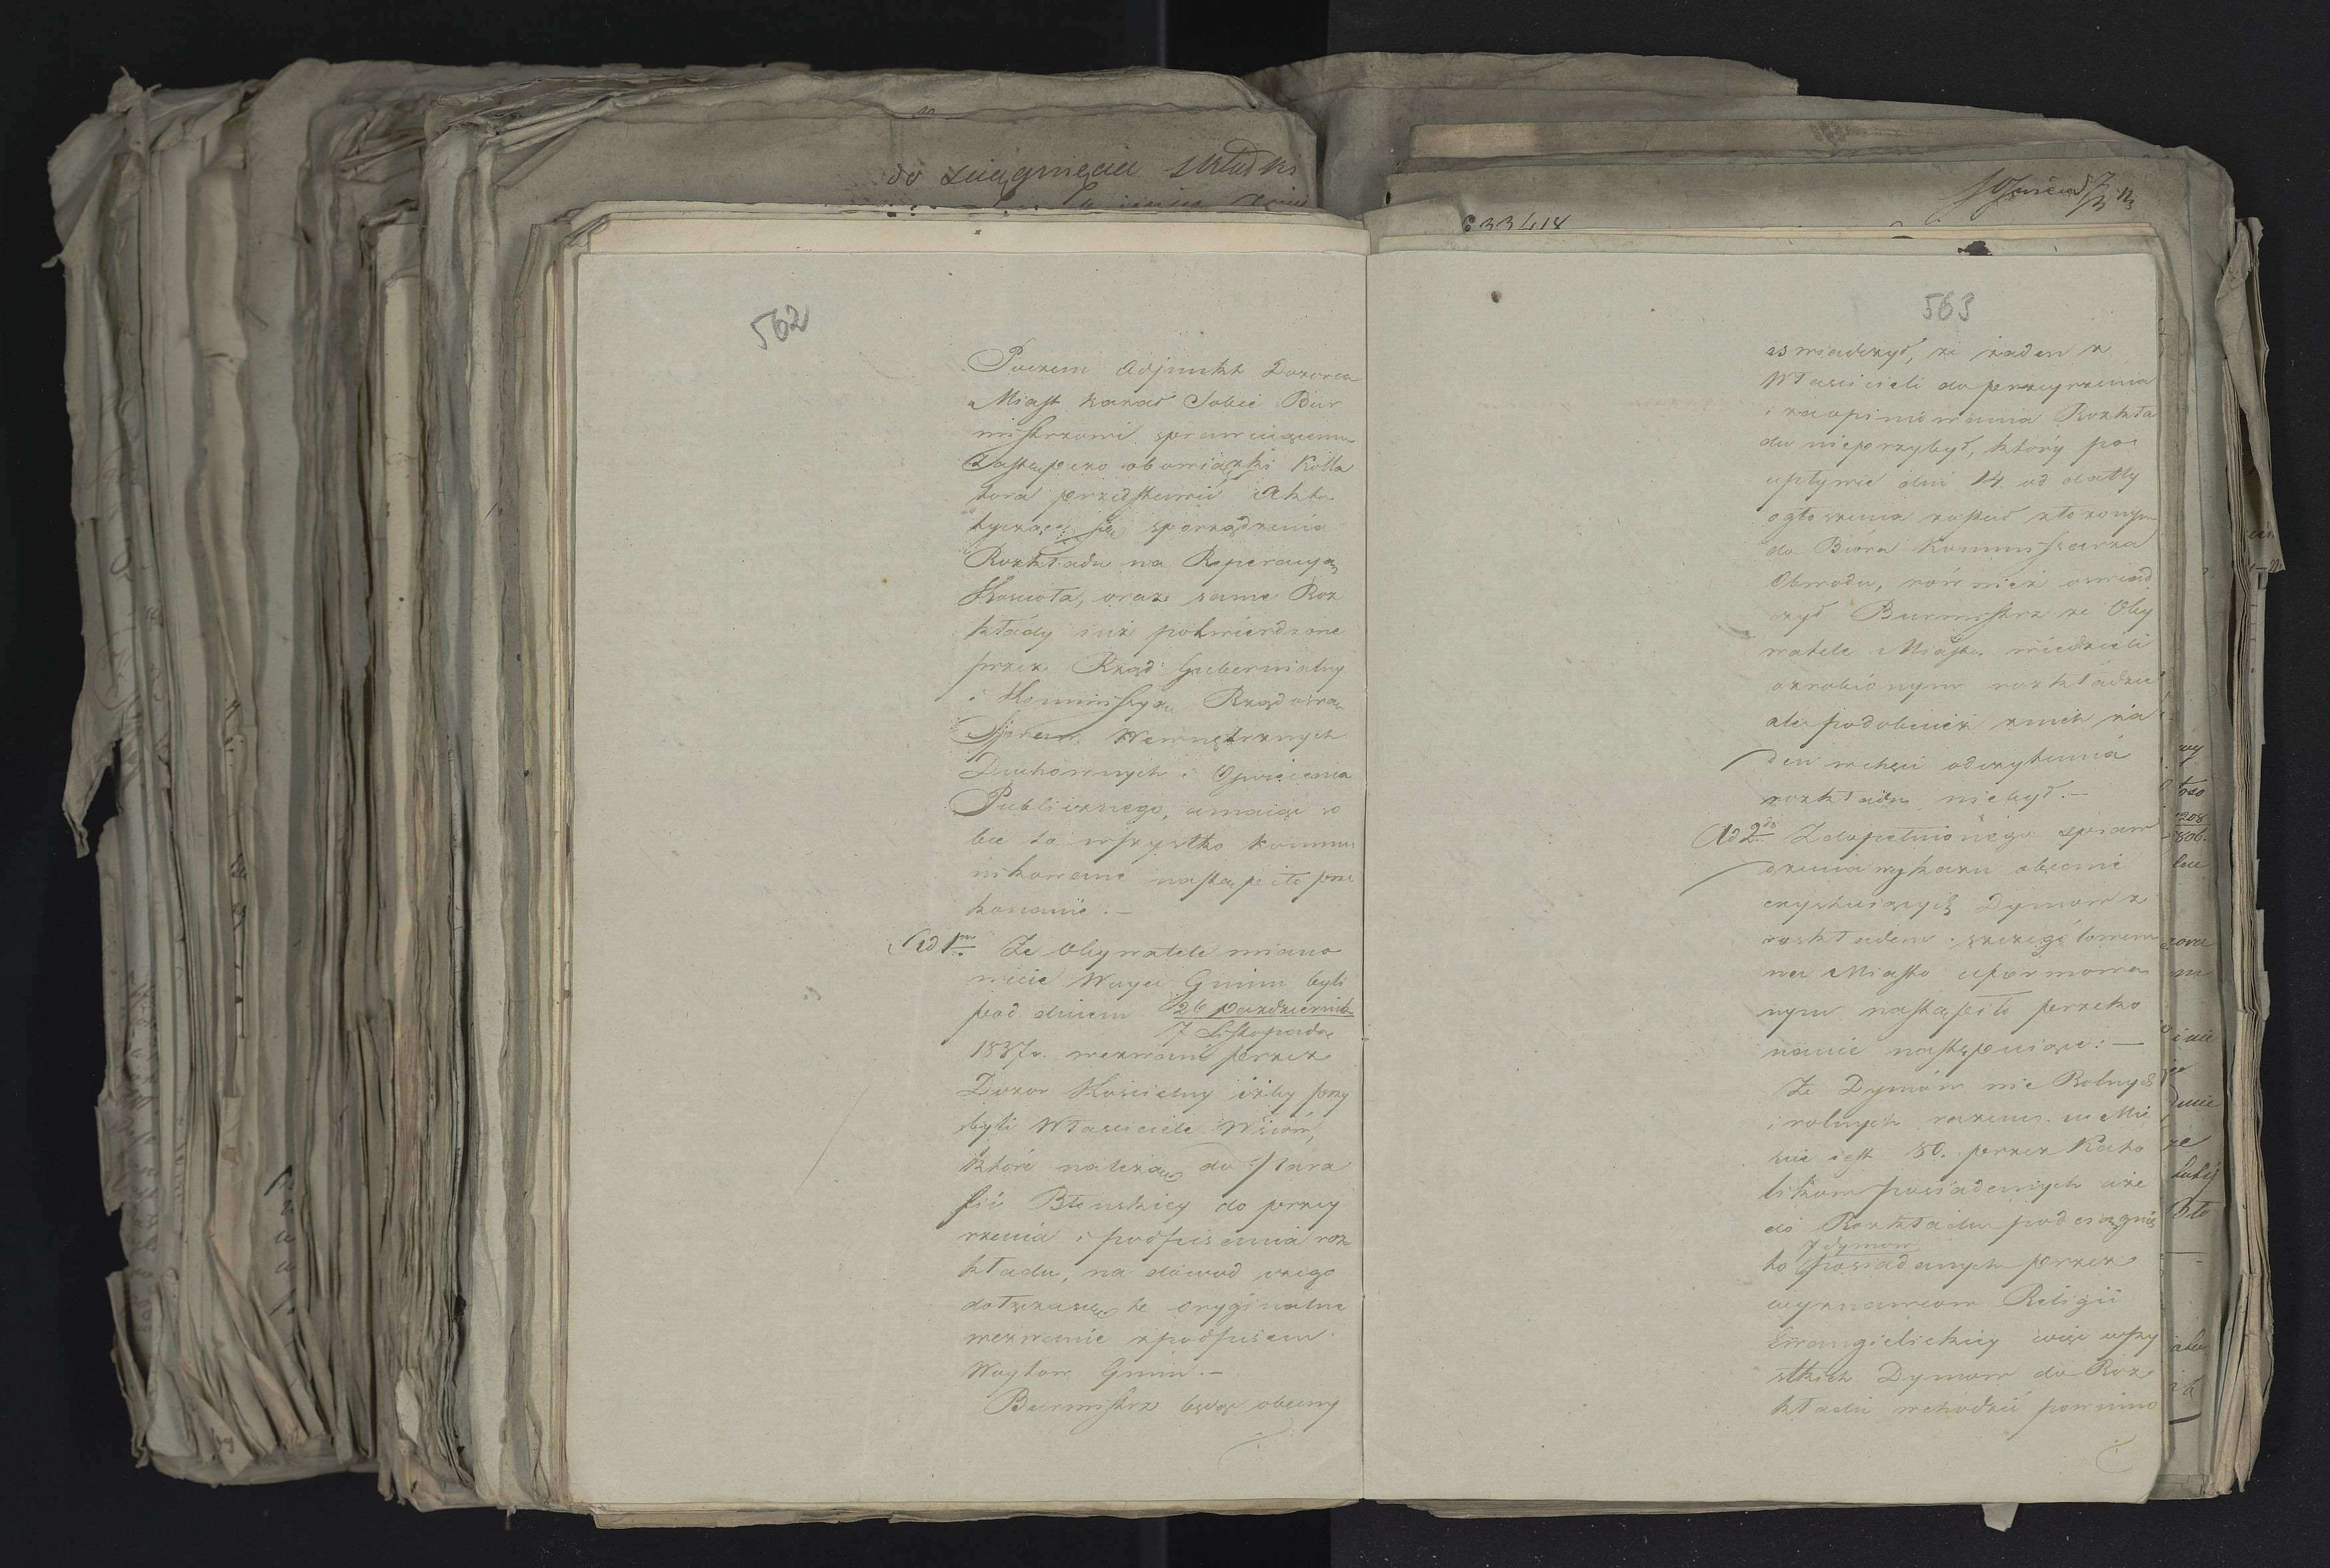 do sciągnięcia składki
33418
562
Poczem Adjunkt Dozorca
Miast kazał Sobie Bur
mistrzowi sprawuiącemu
Zastępczo obowiązki Kolla
tora przedstawić Akta
tyczące się sporządzenia
Rozkładu na Reperacyą
Kościoła, oraz same Roz
kłady iuż potwierdzone
przez Rząd Gubernialny
i Kommissyą Rządową
Spraw Wewnętrznych
Duchownych i Oświecenia
Publicznego, a maiąc so
bie to wszystko kommu
nikowane nastąpiło prze
konanie. –
Ad 1m Że Obywatele miano
wicie Woyci Gmin byli
pod dniem 26 Października
7 Listopada
1837 r. wezwani przez
Dozor Kościelny iżby przy
byli Właściciele Wsiów,
które należą do Para
fii Błonskiey do przey
rzenia i podpisania roz
kładu, na dowod czego
dołącza się te oryginalne
wezwanie z podpisem
Woytow Gmin. –
Burmistrz będąc obecny
563
oswiadczył, że żaden z
Właścicieli do przeyrzenia
i zaopiniowania Rozkła
du nieprzybył, który po
upływie dni 14 od datty
ogłoszenia został złożonym
do Bióra Kommissarza
Obwodu, również oswiad
czył Burmistrz że Oby
watele Miasta wiedzieli
o zrobionym rozkładzie
ale podobnież z nich ża
den w chęci odczytania
rozkładu nie był. –
Ad 2do Z dopełnionego spraw
dzenia wykazu obecnie
exystuiących Dymow z
rozkładem szczegołowem
na Miasto uformowa
nym nastąpiło przeko
nanie następuiące: –
Że Dymów nie Rolnych
i rolnych razem w Mie
ście iest 80. przez Kato
likow posiadanych a że
do Rozkładu podciągnię
7 dymow
to posiadanych przez
wyznawcow Religii
Ewangielickiey więc wszy
stkich Dymow do Roz
kładu wchodzić powinno